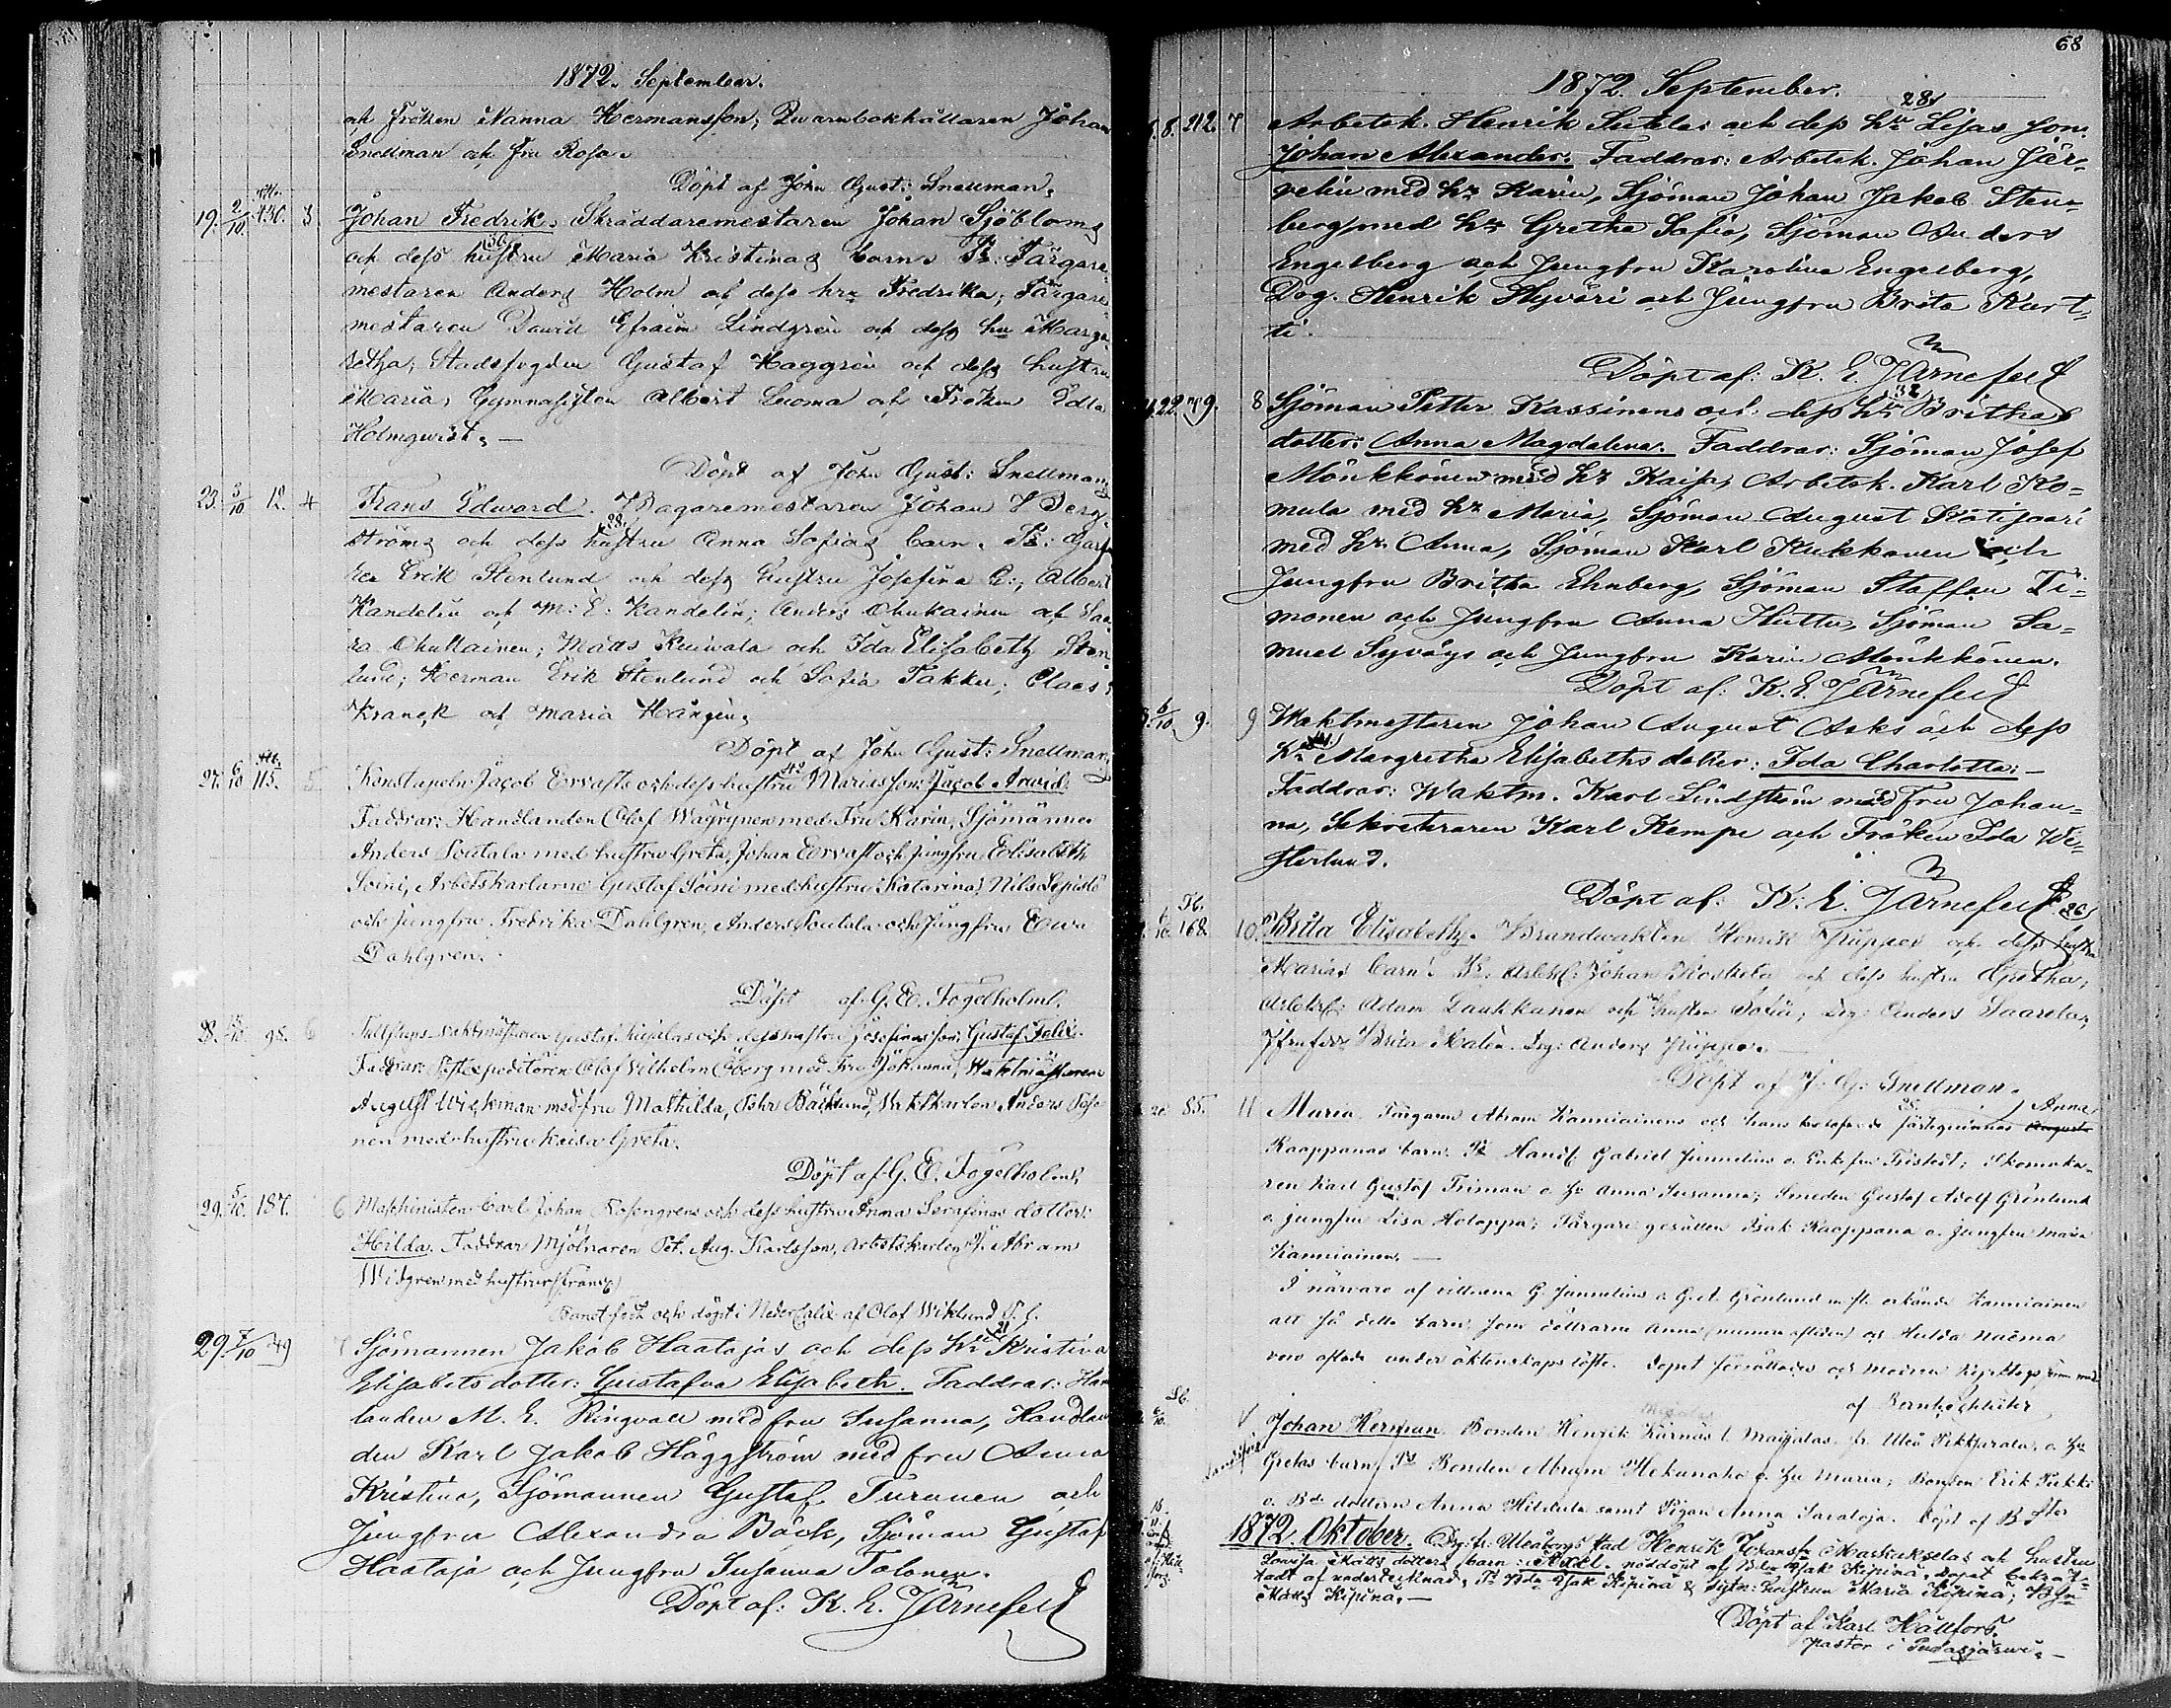 1872. September.
och Fröken Nanna Hermansson, Qvarnbokhållaren Johan
Snellman och Fru Rosa.
Döpt af John Gust: Snellman.
19. 2/10. 430. 3. Johan Fredrik. Skräddaremestaren Johan Sjöbloms
och dess hustru Maria Kristinas barn. Fr: Färgare-
mestaren Anders Holm och dess hru Fredrika; Färgare-
mestaren David Efraim Lindgren och dess hu Marga-
retha; Stadsfogden Gustaf Haggrén och dess hustru
Maria; Gymnasisten Albert Luoma och Fröken Edla
Holmqvist. —
Döpt af John Gust: Snellman
23. 3/10 12. 4 Frans Edward. Bagaremestaren Johan Berg-
ströms och dess hustru Anna Sofias barn. Fr:
Erik Stenlund och dess hustru Josefina; Albert
Kandelin och M: E. Kandelin; Anders Ohukainen och Saa-
ra Ohukainen; Matts Kuiwala och Ida Elisabeth Sten-
lund; Herman Erik Stenlund och Sofia Takku; Claes
Kranck och Maria Hängin.
Döpt af John Gust: Snellman
27. 6/10 115. 5 Konstapeln Jacob Ervasts och dess hustru Marias son: Jacob Arvid.
Faddrar: Handlanden Olof Wäyrynen med Fru Karin, Sjömännen
Anders Soutala med hustru Greta, Johan Ervast och jungfru Elisabeth
Soini, Arbetskarlarne Gustaf Soini med hustru Katarina, Nils Lepistö
och jungfru Fredrika Dahlgren, Anders Soutala och jungfru Ewa
Dahlgren.
Döpt af G. E. Fogelholm.
28. 98. 6 Gustaf och dess hustru Josefinas son: Gustaf Felix.
Faddrar: Postexpeditören Olof Wilhelm Öberg med Fru Johanna, Waktmästaren
August Wickman med fru Mathilda, Pehr Bäcklund, Arbetskarlen Anders
nen med hustru Kaisa Greta.
Döpt af G. E. Fogelholm.
29. 5/10. 187. 6 Maschinisten Carl Johan Rosengrens och dess hustru Anna Serafinas dotter:
Hilda. Faddrar Mjölnaren Pet. Aug. Karlsson, Arbetskarlen Abram
Widgren med hustru
Barnet födt och döpt i Neder Calix af Olof Wiklund
29. 7/10 49 7 Sjömannen Jakob Haatajas och dess hu Kristina
Elisabets dotter: Gustafva Elisabeth. Faddrar: Han
landen M. E. Ringvall med fru Susanna, Handlan
den Karl Jakob Häggström med fru Anna
Kristina, Sjömannen Gustaf Turunen och
Jungfru Alexandra Bäck, Sjöman Gustaf
Haataja och Jungfru Susanna Tolonen.
Döpt af: K. E. Järnefelt
68
1872. September.
8. 212. 7 Arbetsk. Henrik Sutelas och dess hu Lisas son
Johan Alexander. Faddrar: Arbetsk. Johan Jär-
velin med hu Karin, Sjöman Johan Jakob Sten-
berg med hu Gretha Sofia, Sjöman Anders
Engelberg och Jungfru Karolina Engelberg,
Drg. Henrik Hyväri och Jungfru Brita Kurt-
ti.
Döpt af: K. E. Järnefelt
22. 9. 8 Sjöman Petter Kassinens och dess hu Brithas
dotter: Anna Magdalena. Faddrar: Sjöman Josef
Mönkkönen med hu Kaisa, Arbetsk. Karl Ko-
mula med hu Maria, Sjöman August Kätisaari
med hu Anna, Sjöman Karl Kukkonen och
Jungfru Britha Ehnberg, Sjöman Staffan Ti-
monen och Jungfru Anna Huttu, Sjöman Sa-
muel Syväys och Jungfru Karin Mönkkönen.
Döpt af: K. E. Järnefelt
6/10 9. 9 Waktmestaren Johan August Asks och dess
hu Margretha Elisabeths dotter: Ida Charlotta. —
Faddrar: Waktm. Karl Lindström med fru Johan-
na, Sekreteraren Karl Kempe och Fröken Ida We-
sterlund.
Döpt af: K. E. Järnefelt
168. 10. Brita Elisabeth. Brandwakten Henrik Juppos och dess hustru
Marias barn. Fr. Arbtk: Johan Koskela och dess hustru Gretha;
Arbtk: Adam Laukkanen och hustru Sofia; Drg: Anders Saarela;
Jfrn Brita Malin. Drg: Anders Juppo.
Döpt af J. G. Snellman.
85. 11 Maria. Färgaren Abram Kanniainens och hans Anna
Kaappanas barn. Fr Handl. Gabriel Junnelius o. Enkefru Tristedt; Skomaka-
ren Karl Gustaf Friman o. hu Anna Susanna; Smeden Gustaf Adolf Grönlund
o. jungfru Lisa Holappa; Färgare gesällen Isak Kaappana o. jungfru Maria
Kanniainen. —
I närvaro af vittnena G. Junnelius o. G. A. Grönlund erkände Kanniainen
att så detta barn som döttrarna Anna (numera afliden) och Hulda
voro aflade under äktenskapslöfte.
af Bernh. Schlüter
Johan Herman. Bonden Henrik Kärnäs l. Maijalas fr. Uleå o. hu
Gretas barn. Fr Bonden Abram Hekunaho o. hu Maria; Bonden Erik Pukki
o. Bd: dottern Anna Hiltula samt Pigan Anna Savaloja. Döpt af B. Str
1872. Oktober. Drg. fr. Uleåborgs stad Henrik Johanss. Markukselas och hustru
Lowisa Matts dotters barn: Axel. nöddöpt af Bdn Isak Kipinä. Dopet bekräf-
tadt af undertecknad. Fr Bdn Isak Kipinä & hustrun Maria Kipinä;
Matts Kipinä. —
Döpt af Karl Hällfors.
Pastor i Pudasjärwi. —